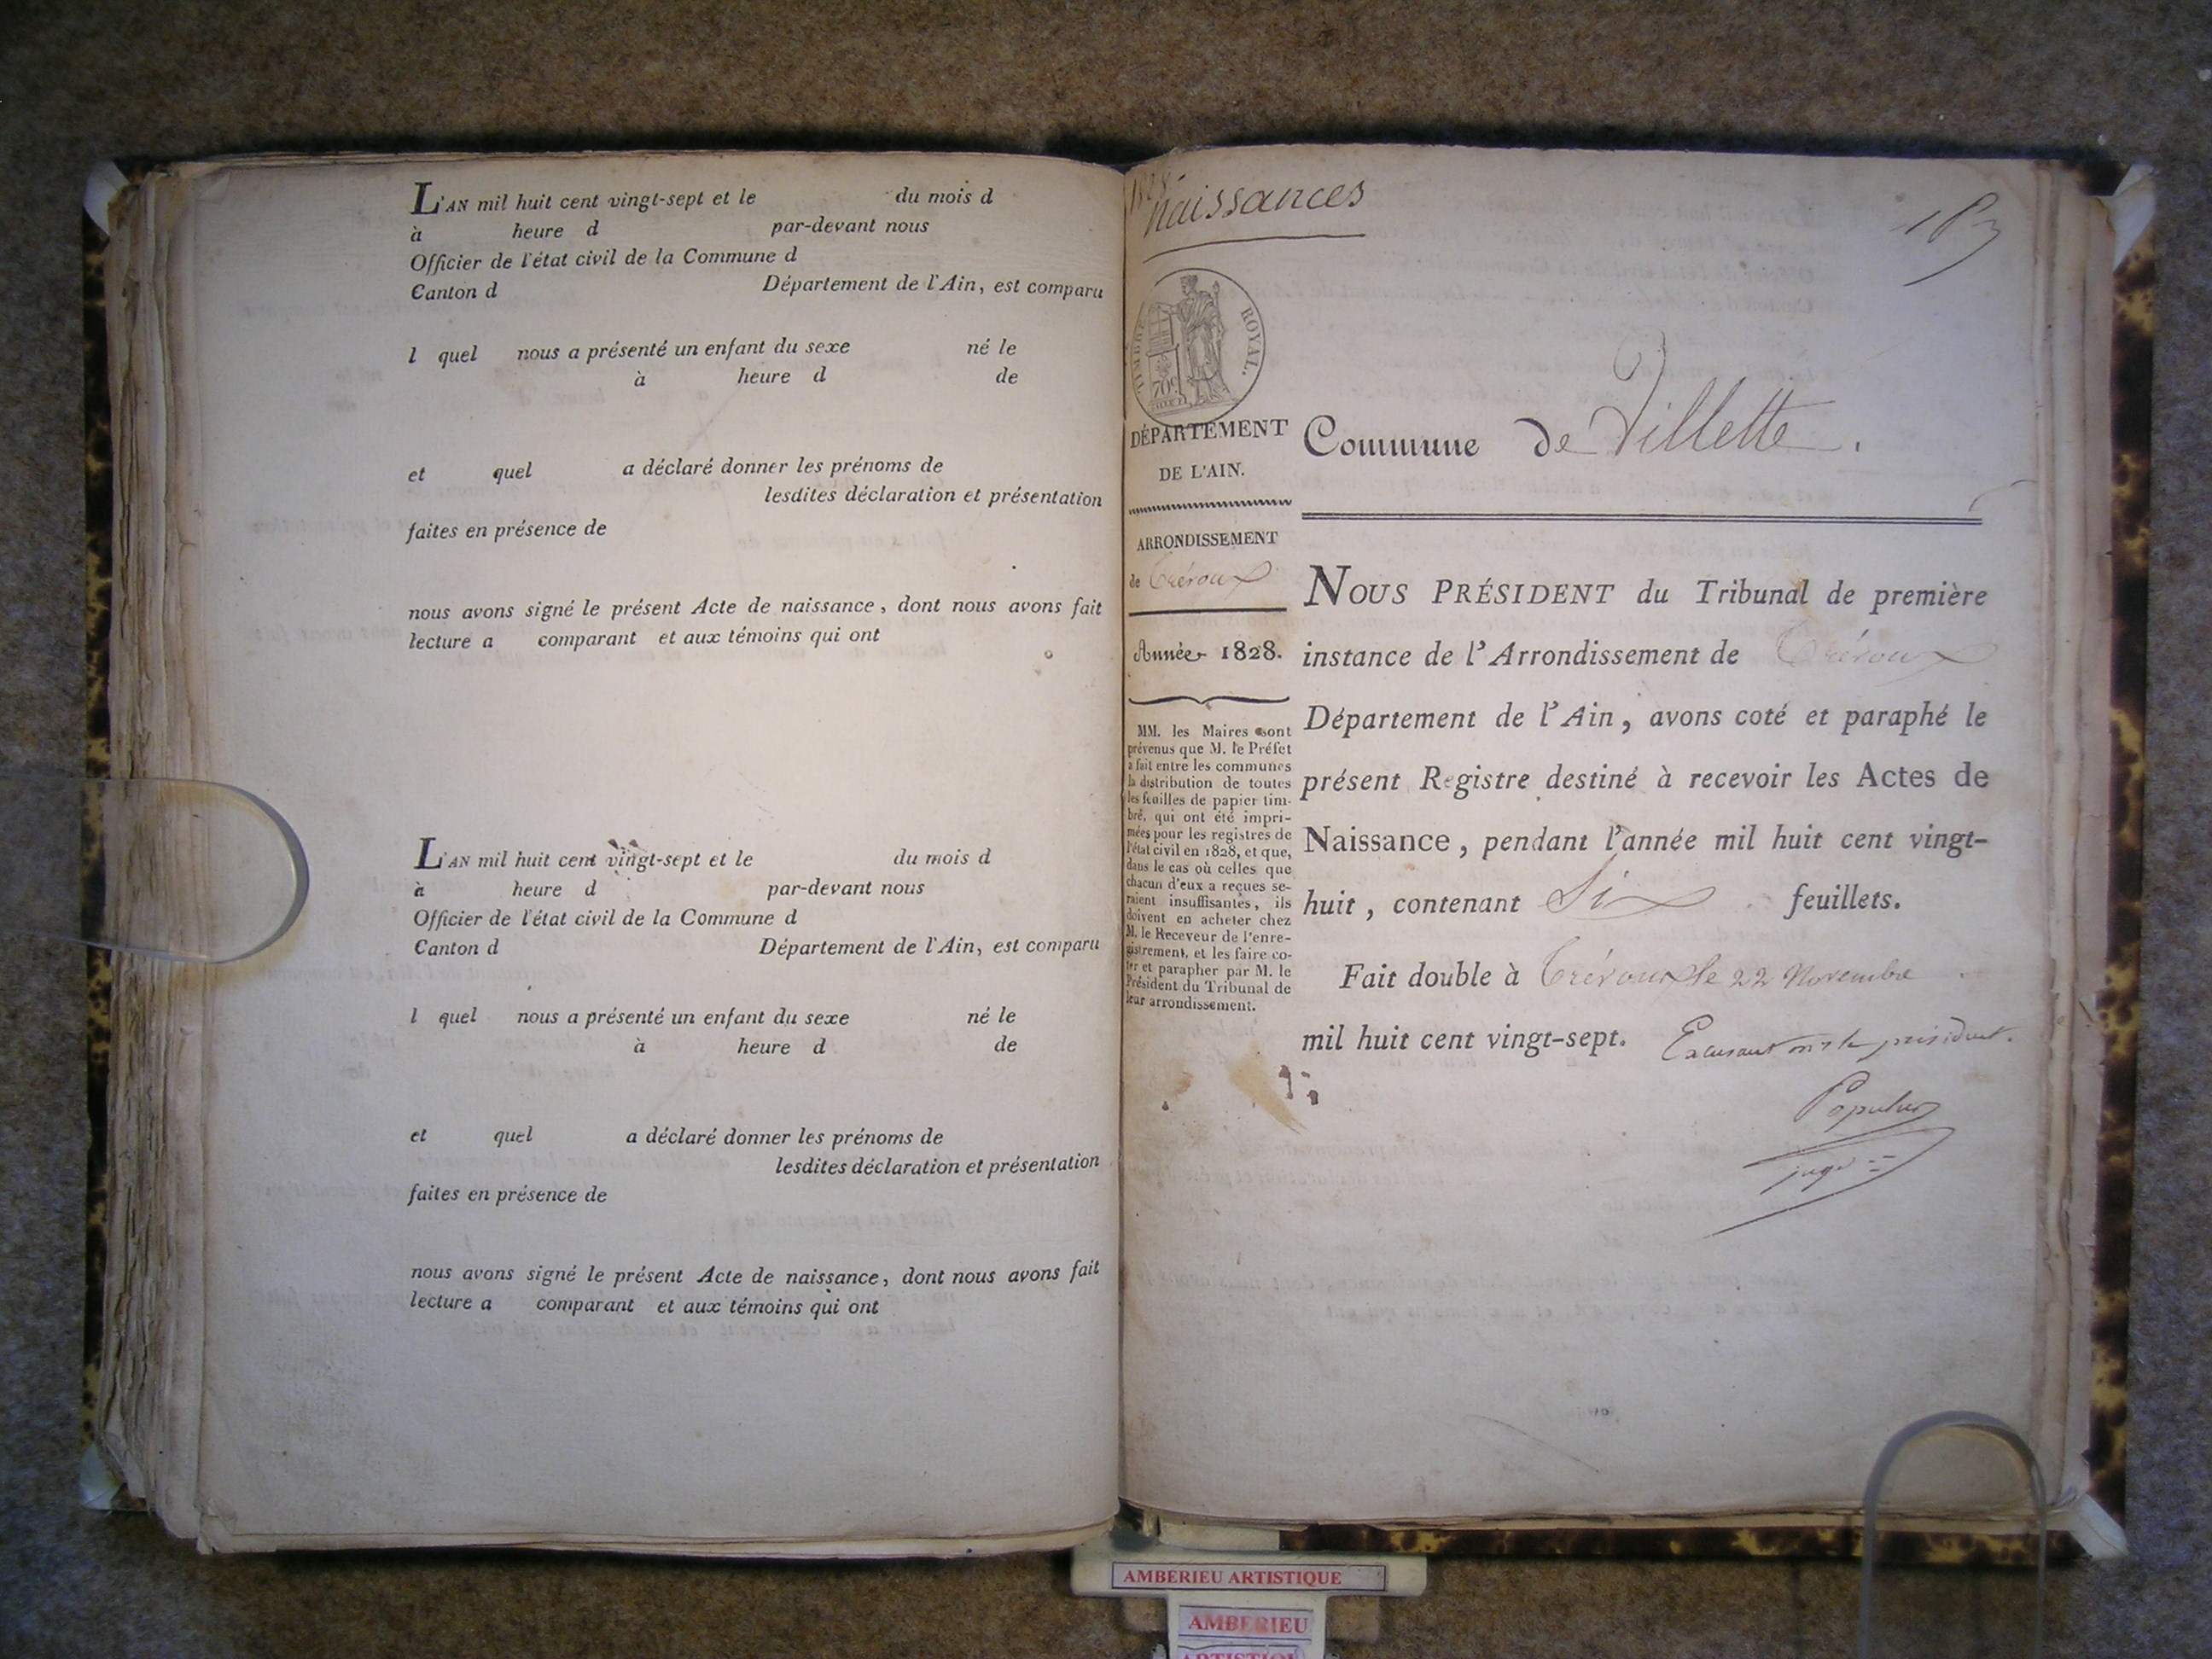 L'AN mil huit cent vingt-sept et le du mois d
à heure d par-devant nous
Officier de l'état civil de la Commune d
Canton d Département de l'Ain, est comparu
l quel nous a présenté un enfant du sexe né le
à heure d de
et quel a déclaré donner les prénoms de
lesdites déclaration et présentation
faites en présence de
nous avons signé le présent Acte de naissance, dont nous avons fait
lecture a comparant et aux témoins qui ont
L'AN mil huit cent vingt-sept et le du mois d
à heure d par-devant nous
Officier de l'état civil de la Commune d
Canton d Département de l'Ain, est comparu
l quel nous a présenté un enfant du sexe né le
à heure d de
et quel a déclaré donner les prénoms de
lesdites déclaration et présentation
faites en présence de
nous avons signé le présent Acte de naissance, dont nous avons fait
lecture a comparant et aux témoins qui ont
1828
Naissances
TIMBRE ROYAL.
70c
DÉPARTEMENT
DE L'AIN.
ARRONDISSEMENT
de Trévoux
Année 1828.
MM. les Maires sont
prévenus que M. le Préfet
a fait entre les communes
la distribution de toutes
les feuilles de papier tim-
bré, qui ont été impri-
mées pour les registres de
l'état civil en 1828, et que,
dans le cas où celles que
chacun d'eux a reçues se-
raient insuffisantes, ils
doivent en acheter chez
M. le Receveur de l'enre-
gistrement, et les faire co-
ter et parapher par M. le
Président du Tribunal de
leur arrondissement.
Commune de Villette.
NOUS PRÉSIDENT du Tribunal de première
instance de l'Arrondissement de Trévoux
Département de l'Ain, avons coté et paraphé le
présent Registre destiné à recevoir les Actes de
Naissance, pendant l'année mil huit cent vingt-
huit, contenant Six feuillets.
Fait double à Trévoux le 22 Novembre
mil huit cent vingt-sept. Excusant mr le président.
Populus
juge
AMBERIEU ARTISTIQUE
AMBERIEU
ARTISTIQU